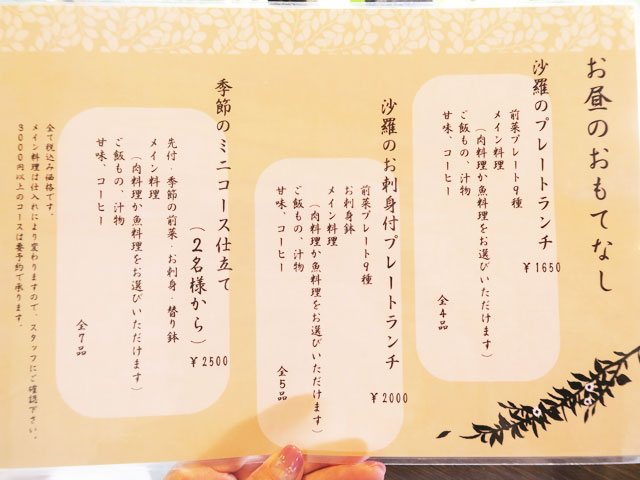 お昼のおもてなし
沙羅のプレートランチ
¥1650
前菜プレート9種
メイン料理
(肉料理か魚料理をお選びいただけます)
ご飯もの、汁物
甘味、コーヒー
全4品
沙羅のお刺身付プレートランチ
¥2000
前菜プレート9種
お刺身鉢
メイン料理
(肉料理か魚料理をお選びいただけます)
ご飯もの、汁物
甘味、コーヒー
全5品
季節のミニコース仕立て
(2名様から)
¥2500
先付・季節の前菜・お刺身・替り鉢
メイン料理
(肉料理か魚料理をお選びいただけます)
ご飯もの、汁物
甘味、コーヒー
全7品
全て税込み価格です。
メイン料理は仕入れにより変わりますので、スタッフにご確認下さい。
3000円以上のコースは要予約で承ります。